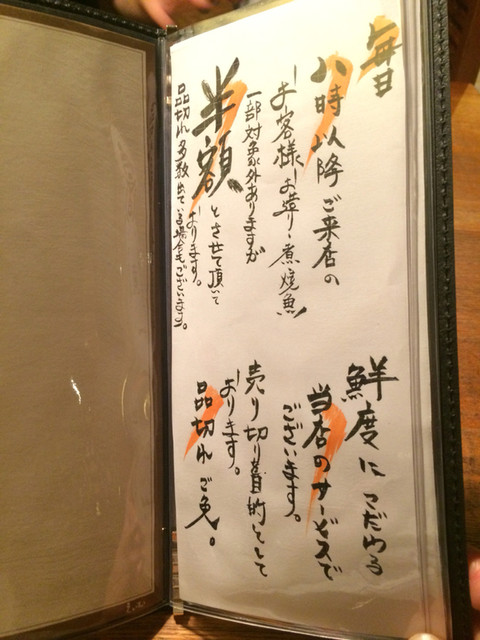 毎日
八時以降ご来店の
お客様お造り・煮焼魚
一部対象外ありますが
半額とさせて頂いて
おります。
品切れ多数出ている場合もございます。
鮮度にこだわる
当店のサービスで
ございます。
売り切り目的として
おります。
品切れご免。